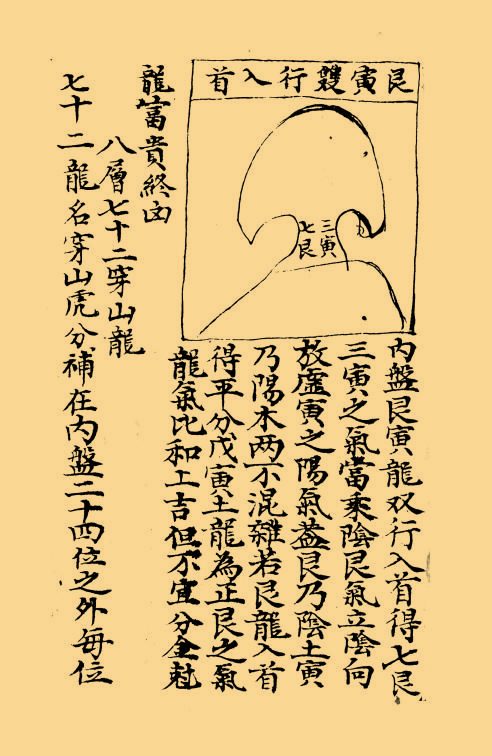 艮寅雙行入首
三寅
七艮
内盤艮寅龍双行入首得七艮
三寅之氣當乘陰艮氣立陰向
放虛寅之陽氣蓋艮乃陰土寅
乃陽木两不混雜若艮龍入首
得平分戊寅土龍為正艮之氣
龍氣比和上吉但不宜分金尅
龍富貴終凶
八層七十二穿山龍
七十二龍名穿山虎分補在内盤二十四位之外每位